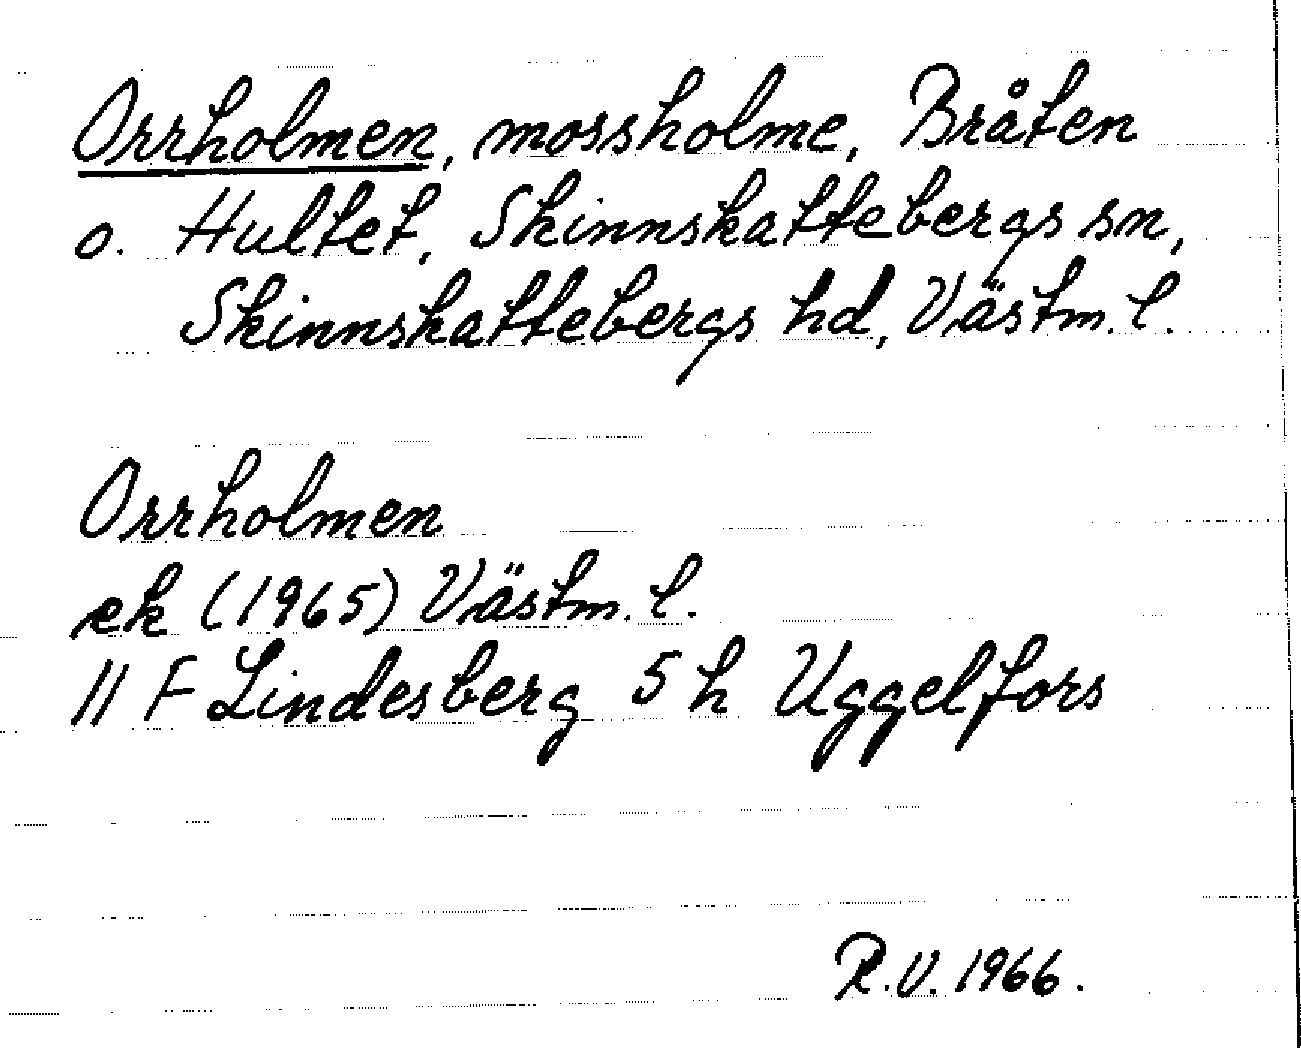 Orrholmen, mossholme, Bråten
o. Hultet, Skinnskattebergs sn,
Skinnskattebergs hd, Västm. l.
Orrholmen
ek (1965) Västm. l.
11 F Lindesberg 5 h Uggelfors
R.V. 1966.